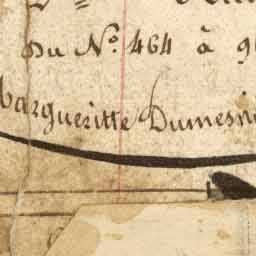 Du N.º 464 à 9
Margueritte Dumesni